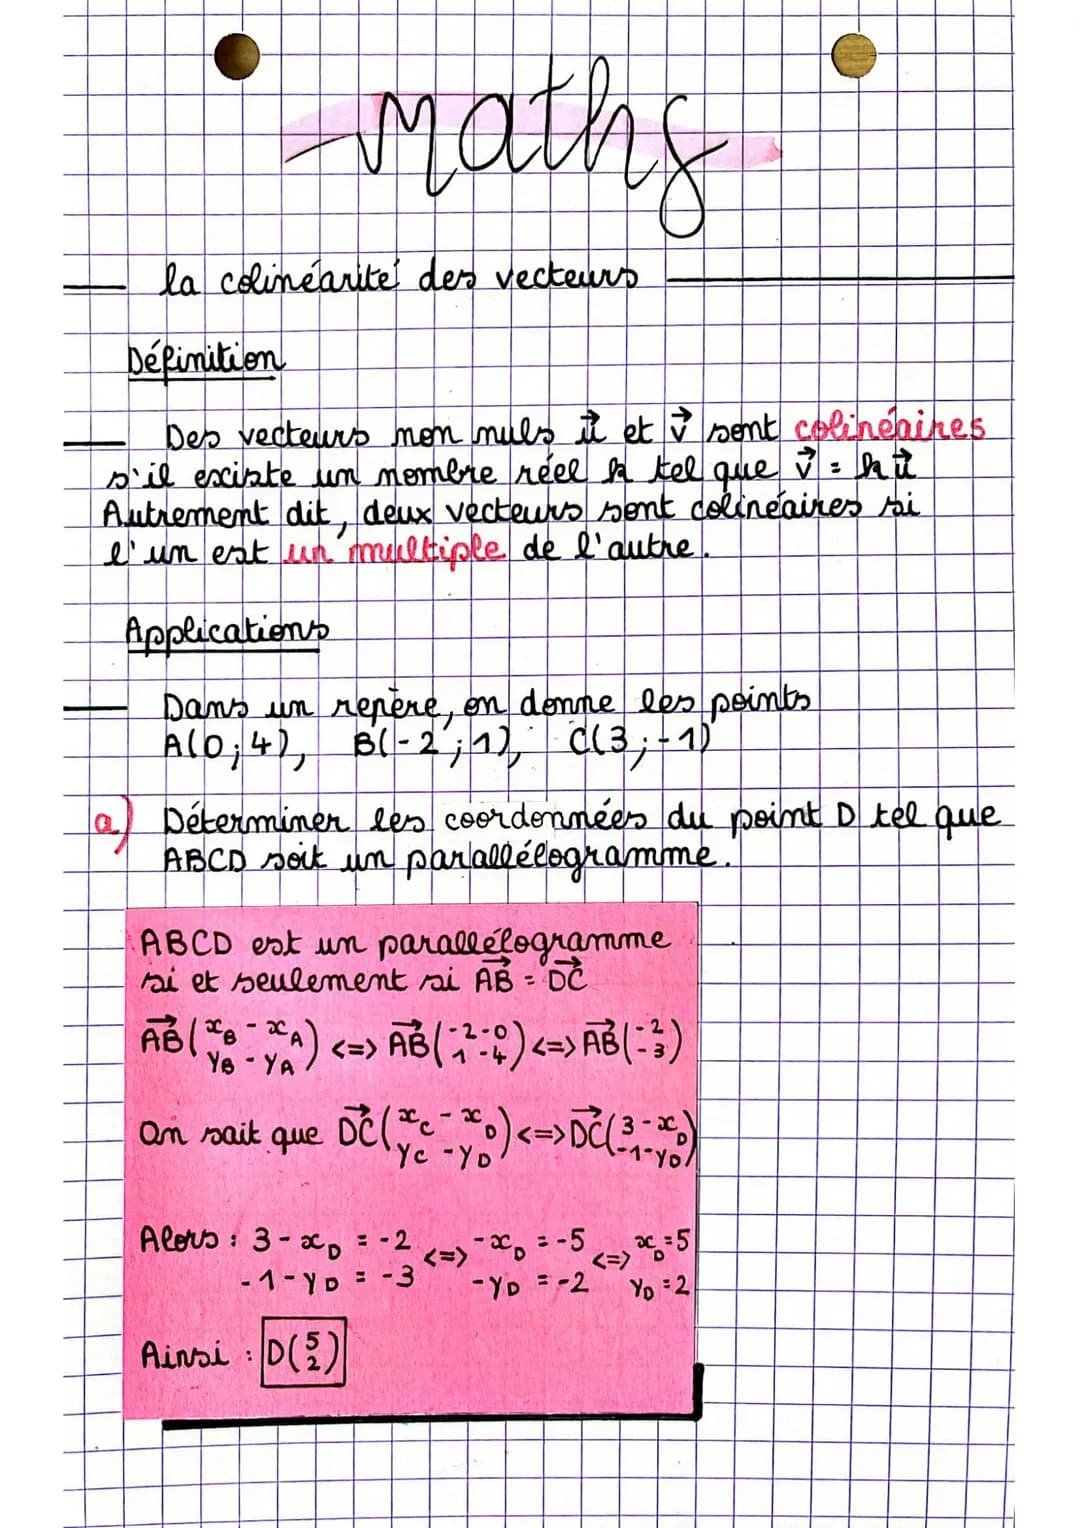 Maths
la colinéarité des vecteurs
Définition
Des vecteurs non nuls u⃗ et v⃗ sont colinéaires
s'il existe un nombre réel k tel que v⃗ = k u⃗
Autrement dit, deux vecteurs sont colinéaires si
l'un est un multiple de l'autre.
Applications
Dans un repère, on donne les points
A(0;4), B(-2;1), C(3;-1)
a) Déterminer les coordonnées du point D tel que
ABCD soit un parallélogramme.
ABCD est un parallélogramme
si et seulement si AB⃗ = DC⃗
AB⃗ (x_B - x_A / y_B - y_A) <=> AB⃗ (-2-0 / 1-4) <=> AB⃗ (-2 / -3)
On sait que DC⃗ (x_C - x_D / y_C - y_D) <=> DC⃗ (3-x_D / -1-y_D)
Alors : 3 - x_D = -2 <=> -x_D = -5 <=> x_D = 5
-1 - y_D = -3 -y_D = -2 y_D = 2
Ainsi : D(5 / 2)